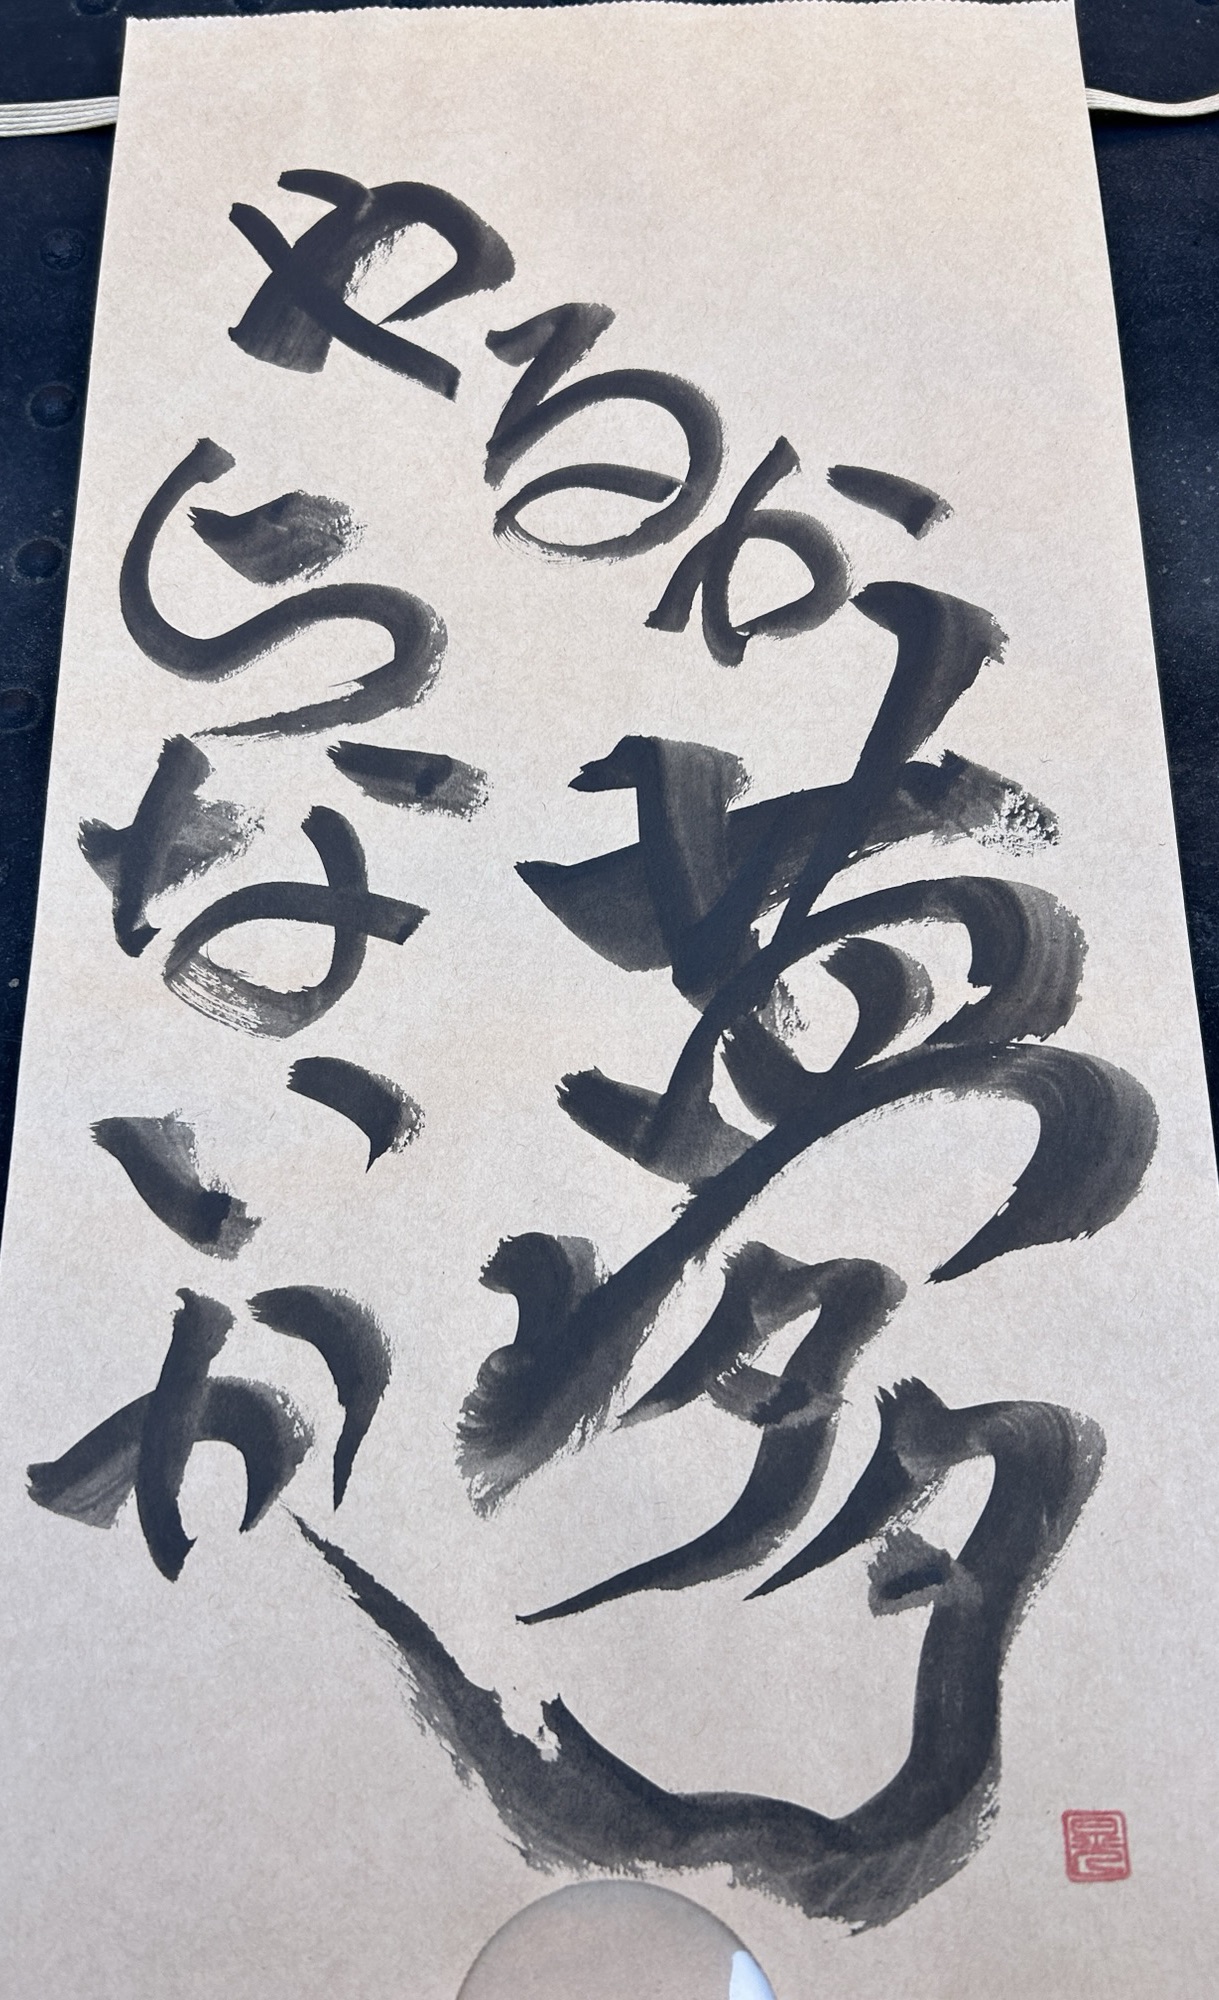 やるか
やらないか
夢